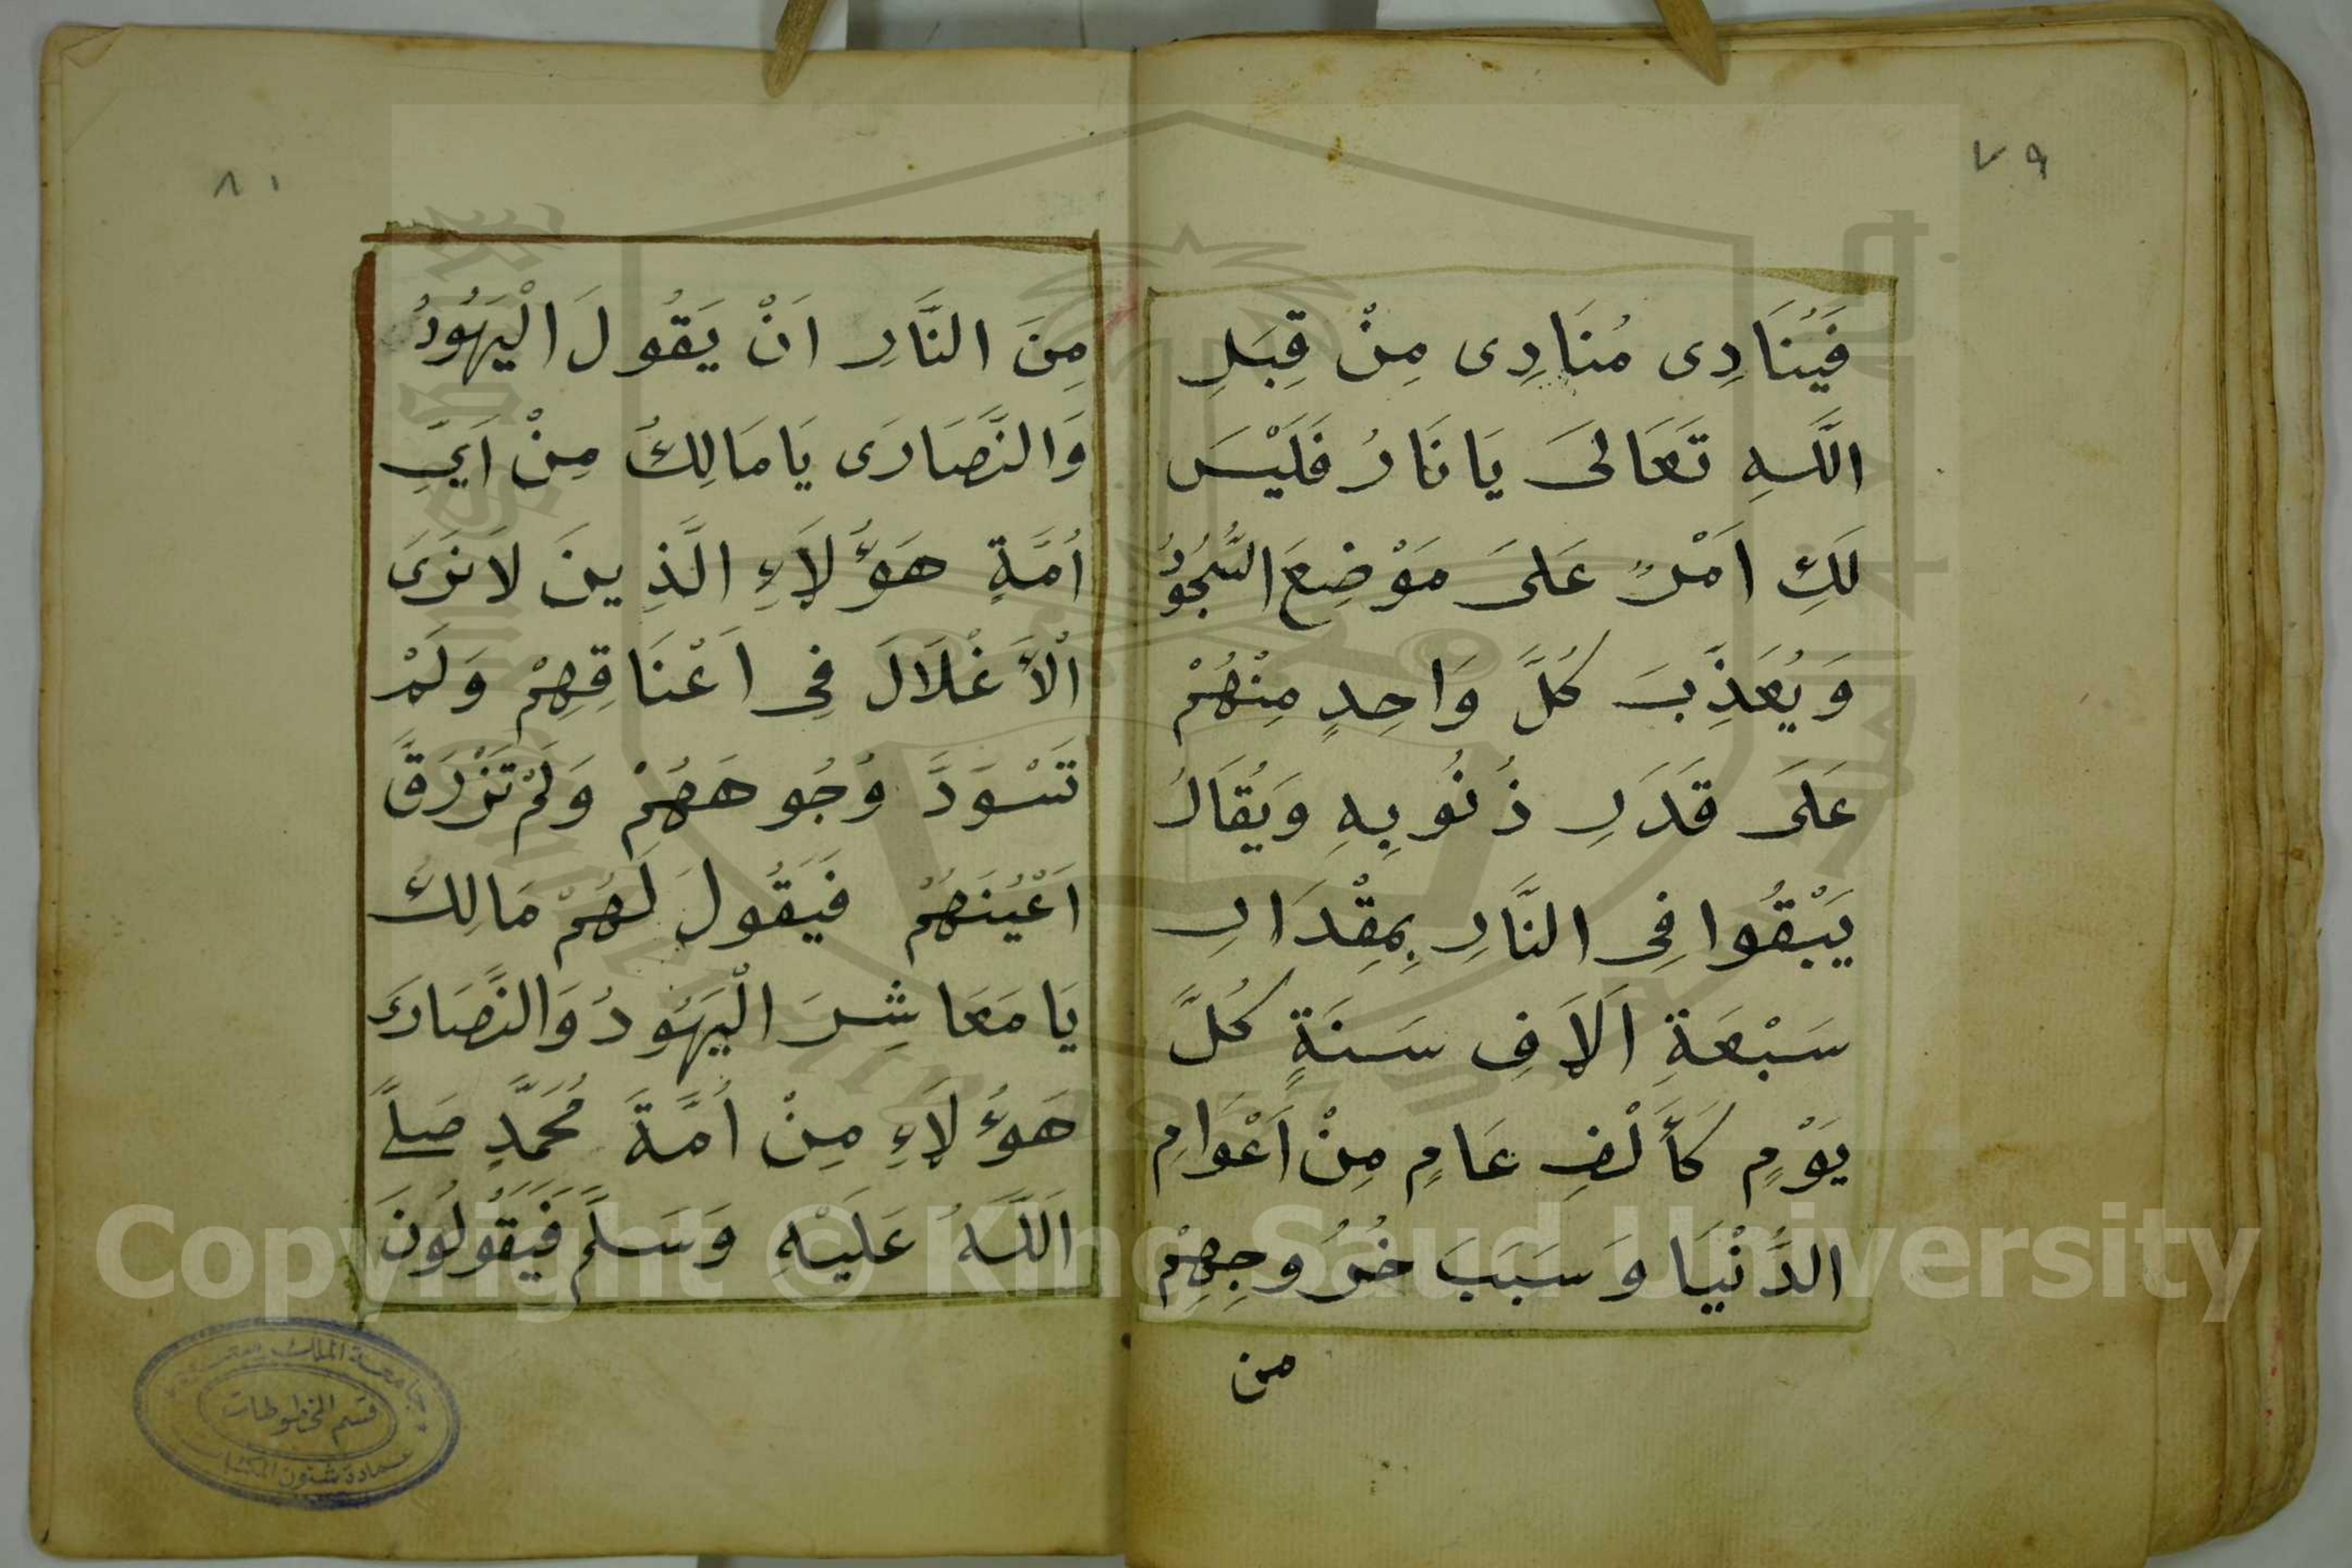 ٧٩
فَيُنَادِى مُنَادِى مِنْ قِبَلِ
اللَّهِ تَعَالَى يَا نَارُ فَلَيْسَ
لَكِ اَمْرٌ عَلَى مَوْضِعَ السُّجُودُ
وَيُعَذِّبَ كُلَّ وَاحِدٍ مِنْهُمْ
عَلَى قَدَرِ ذُنُوبِهِ وَيُقَالُ
يَبْقُوا فِى النَّارِ بِمِقْدَارِ
سَبْعَةِ اَلَافِ سَنَةٍ كُلَّ
يَوْمٍ كَأَلْفِ عَامٍ مِنْ اَعْوَامِ
الدُّنْيَا وَسَبَبَ خُرُوجِهِمْ
من
٨١
مِنَ النَّارِ اَنْ يَقُولَ الْيَهُودُ
وَالنَّصَارَى يَا مَالِكُ مِنْ اَيِّ
اُمَّةٍ هَؤُلَاءِ الَّذِينَ لَا نَرَى
الْأَغْلَالَ فِى اَعْنَاقِهِمْ وَلَمْ
تَسْوَدَّ وُجُوهَهُمْ وَلَمْ تَزْرَقَّ
اَعْيُنَهُمْ فَيَقُولَ لَهُمْ مَالِكَ
يَا مَعَاشِرَ الْيَهُودُ وَالنَّصَارَى
هَؤُلَاءِ مِنْ اُمَّةَ مُحَمَّدٍ صَلَّى
اللَّهُ عَلَيْهِ وَسَلَّمَ فَيَقُولُونَ
جامعة الملك سعود
قسم المخطوطات
عمادة شئون المكتبات
Copyright © King Saud University